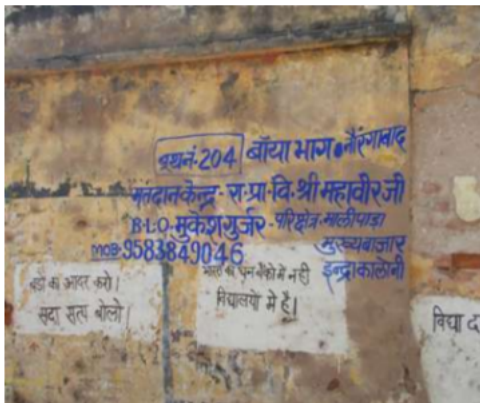 बूथ नं. 204 बाँया भाग • नौरंगाबाद
मतदान केन्द्र - रा.प्रा.वि. श्री महावीर जी
B.L.O. मुकेश गुर्जर - परिक्षेत्र - मालीपाड़ा
MOB - 9583849046 मुख्य बाजार
इन्द्रा कालोनी
बडों का आदर करो।
सदा सत्य बोलो।
भारत का धन बैंको में नही
विद्यालयो मे है।
विद्या द